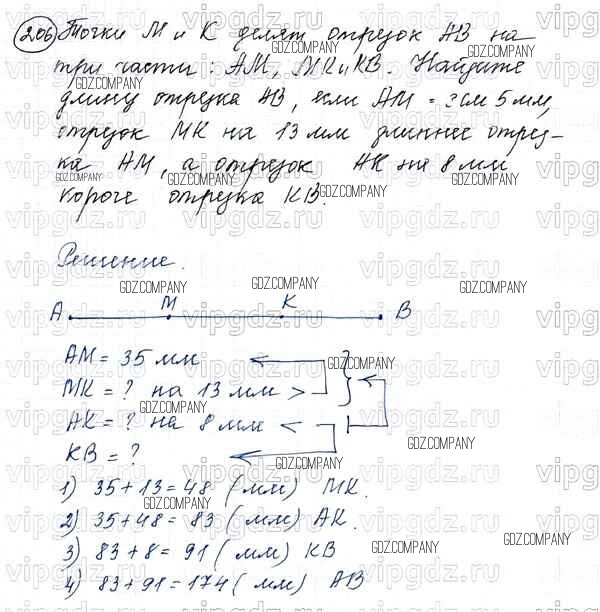 206 Точки М и К делят отрезок АВ на
три части: АМ, МК и КВ. Найдите
длину отрезка АВ, если АМ = 3см 5мм,
отрезок МК на 13 мм длиннее отрез-
ка АМ, а отрезок АК на 8 мм
короче отрезка КВ.
Решение.
А М К В
АМ = 35 мм
МК = ? на 13 мм >
АК = ? на 8 мм <
КВ = ?
1) 35 + 13 = 48 (мм) МК.
2) 35 + 48 = 83 (мм) АК.
3) 83 + 8 = 91 (мм) КВ
4) 83 + 91 = 174 (мм) АВ